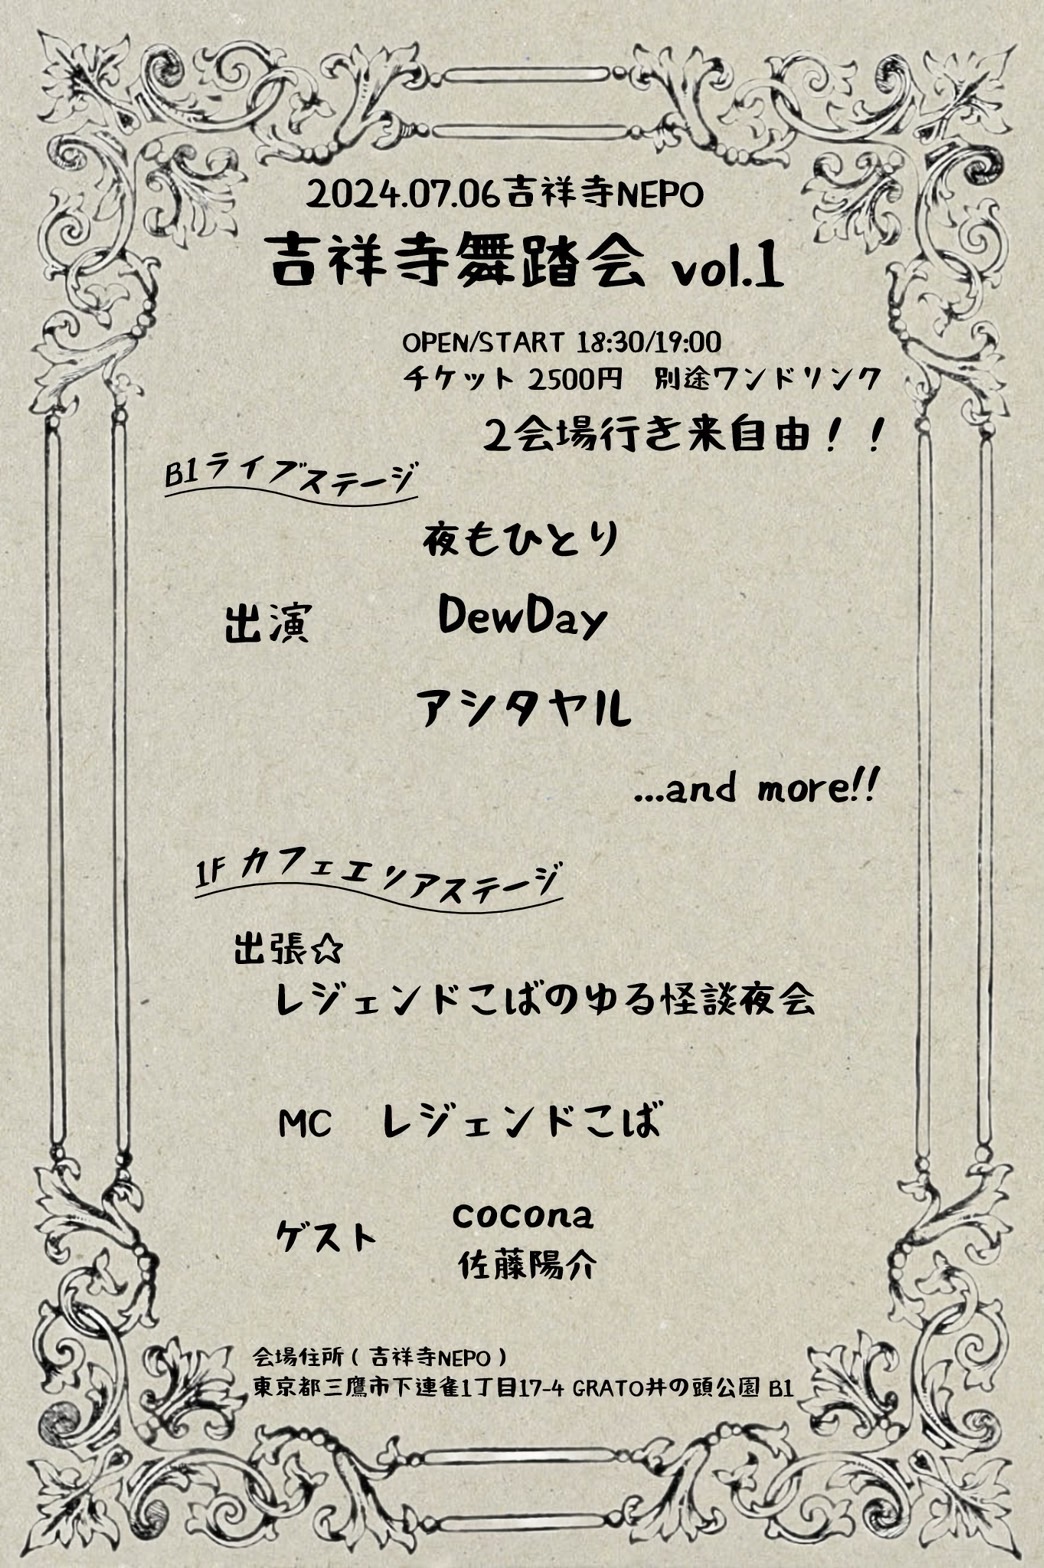 2024.07.06吉祥寺NEPO
吉祥寺舞踏会 vol.1
OPEN/START 18:30/19:00
チケット 2500円　別途ワンドリンク
2会場行き来自由！！
B1ライブステージ
夜もひとり
出演　DewDay
アシタヤル
...and more!!
1F カフェエリアステージ
出張☆
レジェンドこばのゆる怪談夜会
MC　レジェンドこば
ゲスト　cocona
佐藤陽介
会場住所（吉祥寺NEPO）
東京都三鷹市下連雀1丁目17-4 GRATO井の頭公園 B1